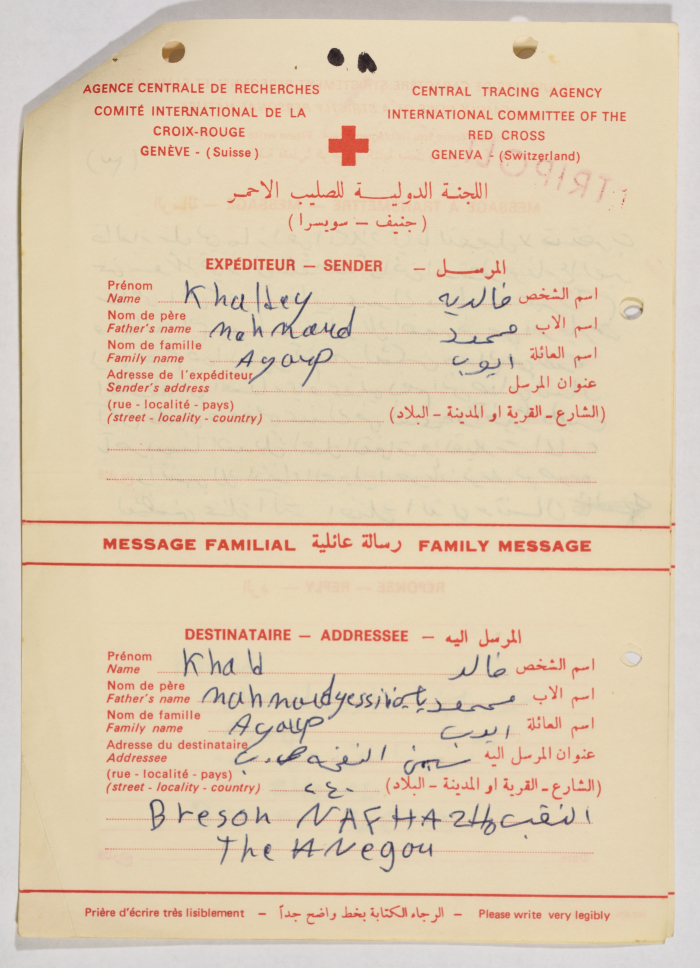 AGENCE CENTRALE DE RECHERCHES
COMITÉ INTERNATIONAL DE LA
CROIX-ROUGE
GENÈVE - (Suisse)
CENTRAL TRACING AGENCY
INTERNATIONAL COMMITTEE OF THE
RED CROSS
GENEVA - (Switzerland)
TRIPOLI
اللجنة الدولية للصليب الاحمر
(جنيف - سويسرا)
EXPÉDITEUR — SENDER — المرسل
Prénom
Name Khaldey خالديه اسم الشخص
Nom de père
Father's name mahmoud محمود اسم الاب
Nom de famille
Family name Ayoup ايوب اسم العائلة
Adresse de l'expéditeur
Sender's address عنوان المرسل
(rue - localité - pays)
(street - locality - country) (الشارع - القرية او المدينة - البلاد)
MESSAGE FAMILIAL رسالة عائلية FAMILY MESSAGE
DESTINATAIRE — ADDRESSEE — المرسل اليه
Prénom
Name Khald خالد اسم الشخص
Nom de père
Father's name mahmoud محمود اسم الاب
Nom de famille
Family name Ayoup ايوب اسم العائلة
Adresse du destinataire
Addressee النفحه عنوان المرسل اليه
(rue - localité - pays)
(street - locality - country) ٢٤٠ (الشارع - القرية او المدينة - البلاد)
Breson NAFHA النقب
The
Prière d'écrire très lisiblement — الرجاء الكتابة بخط واضح جداً — Please write very legibly